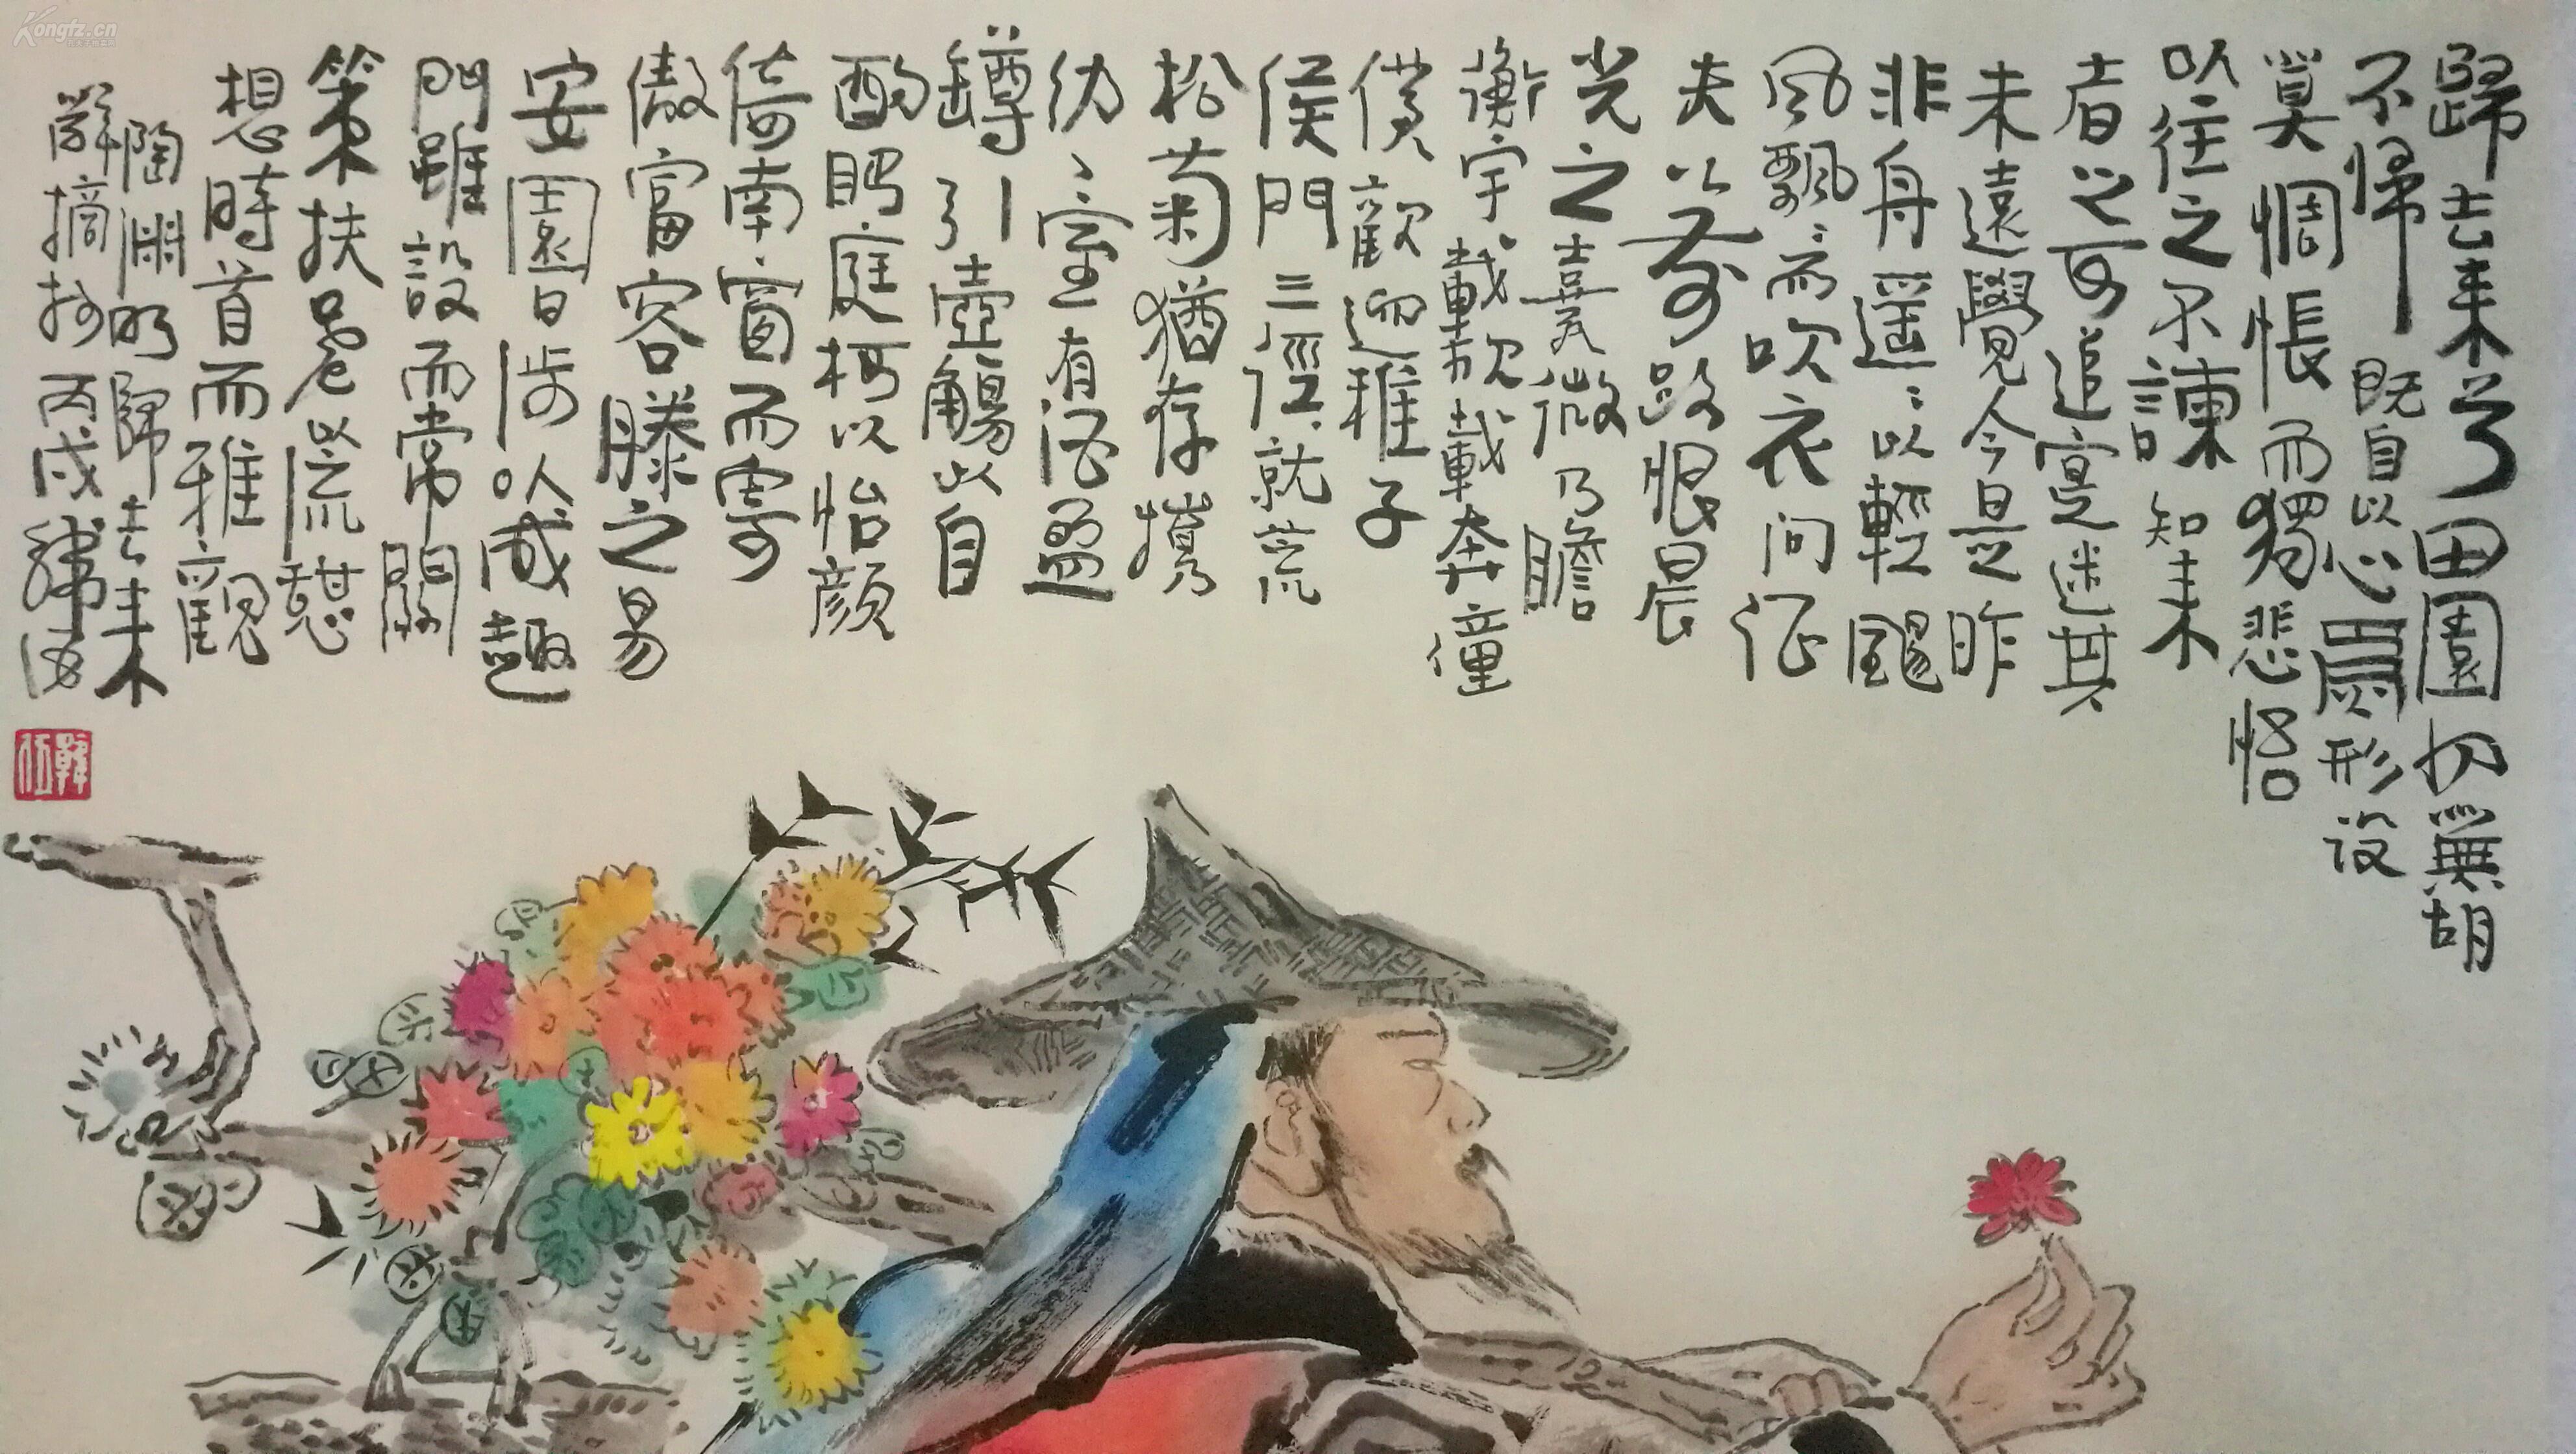 歸去来兮田園如無胡
不歸既自以心爲形设
奚惆悵而獨悲悟
以往之不諫知未
者之可追寔迷其
未遠覺今是昨
非舟遥〻以輕颺
风飘〻而吹衣问征
夫以前路恨晨
光之熹微乃瞻
衡宇載欣載奔僮
僕歡迎稚子
侯門三径就荒
松菊猶存携
幼〻室有酒盈
罇引壶觴以自
酌眄庭柯以怡顔
倚南窗而寄
傲富容膝之易
安園日涉以成趣
門雖設而常關
策扶老以流憩
想時首而雅觀
陶渊明歸去来
辭摘抄丙戌韩伍
韓伍
Kongfz.cn